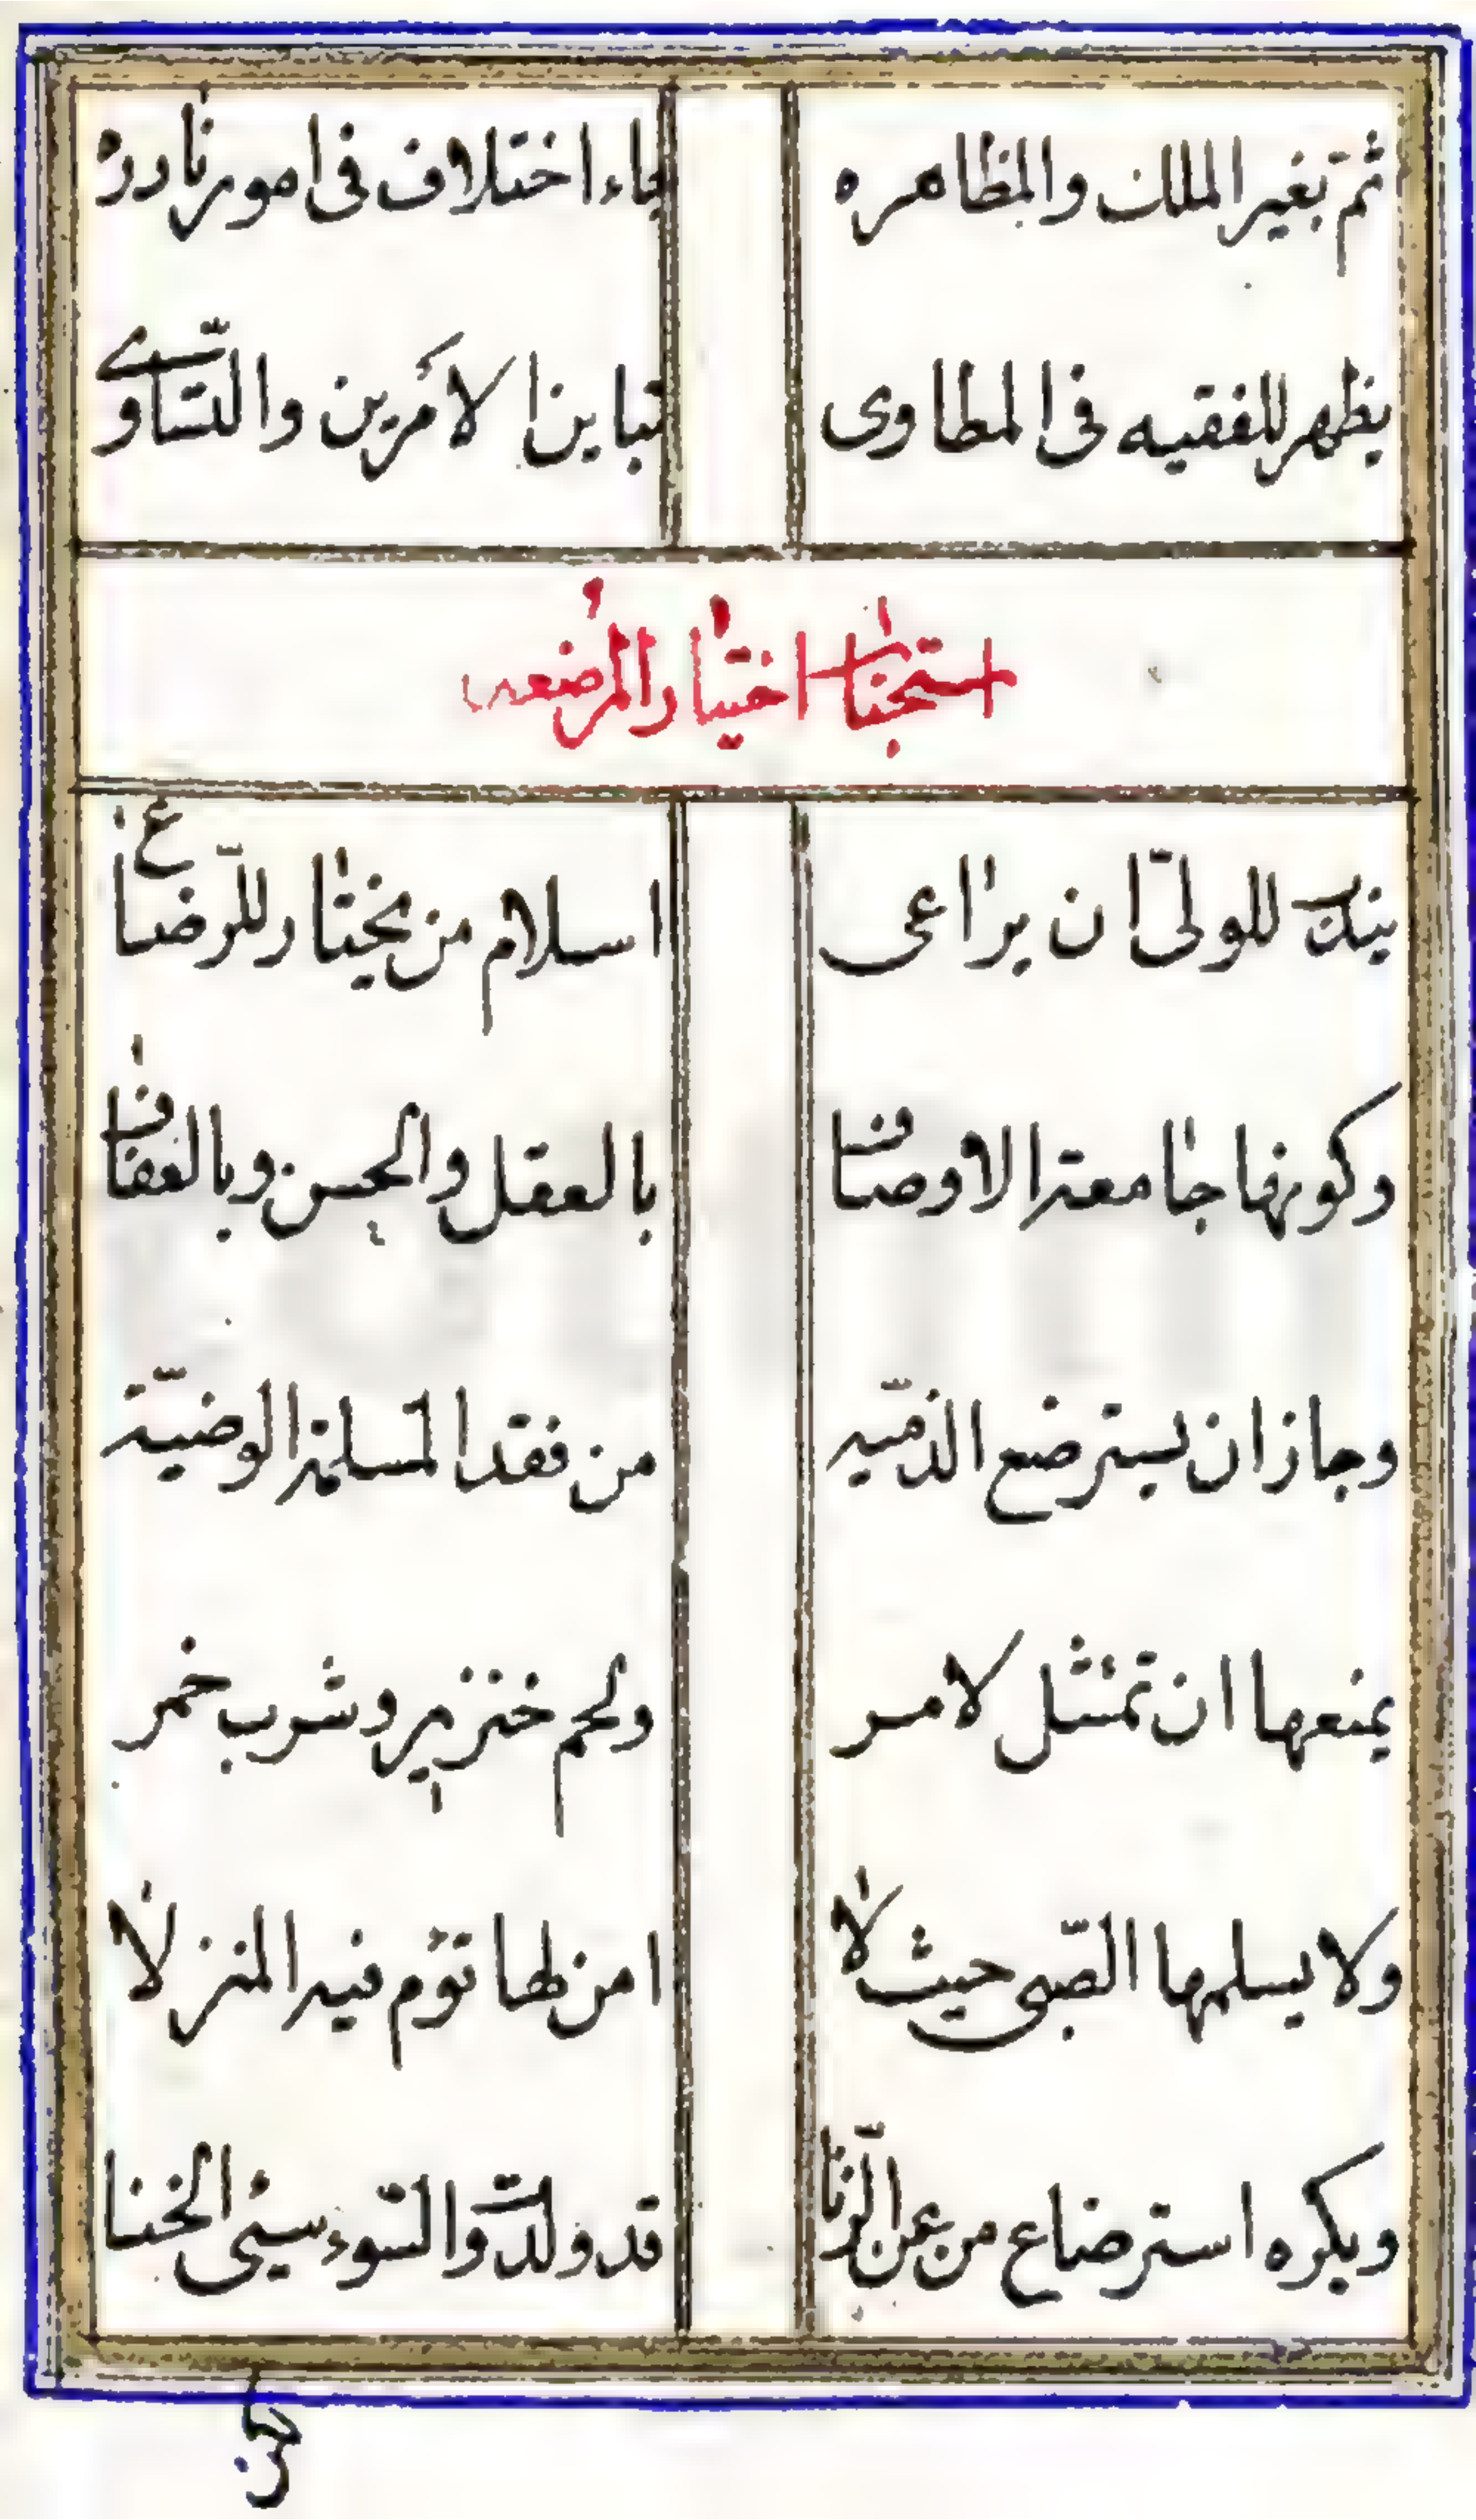 ثم بغير الملك والمظاهره جاء اختلاف فى امور نادره
يظهر للفقيه فى المطاوى تباين الامرين والتساوى
استحباب اختيار المرضعه
يندب للولىّ ان يراعى اسلام من يختار للرّضاع
وكونها جامعة الاوصاف بالعقل والحسن وبالعفاف
وجاز ان يسترضع الذمّيه من فقد المسلمة الوضيّة
يمنعها ان تمتثل لامر ولحم خنزير وشرب خمر
ولا يسلمها الصّبى حيث لا امن لها تؤم فيه المنزلا
ويكره استرضاع من عن الزّنا قد ولدت والسّوء سيئ الخنا